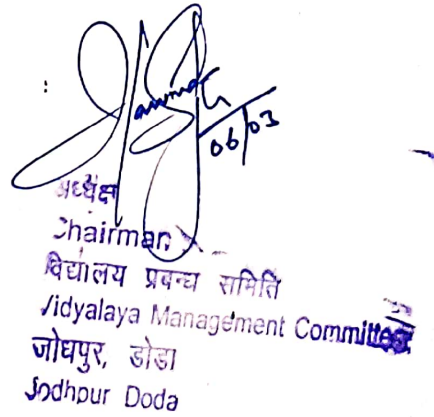 :
06/03
अध्यक्ष
Chairman
विद्यालय प्रबन्ध समिति
Vidyalaya Management Committee
जोधपुर, डोडा
Jodhpur Doda